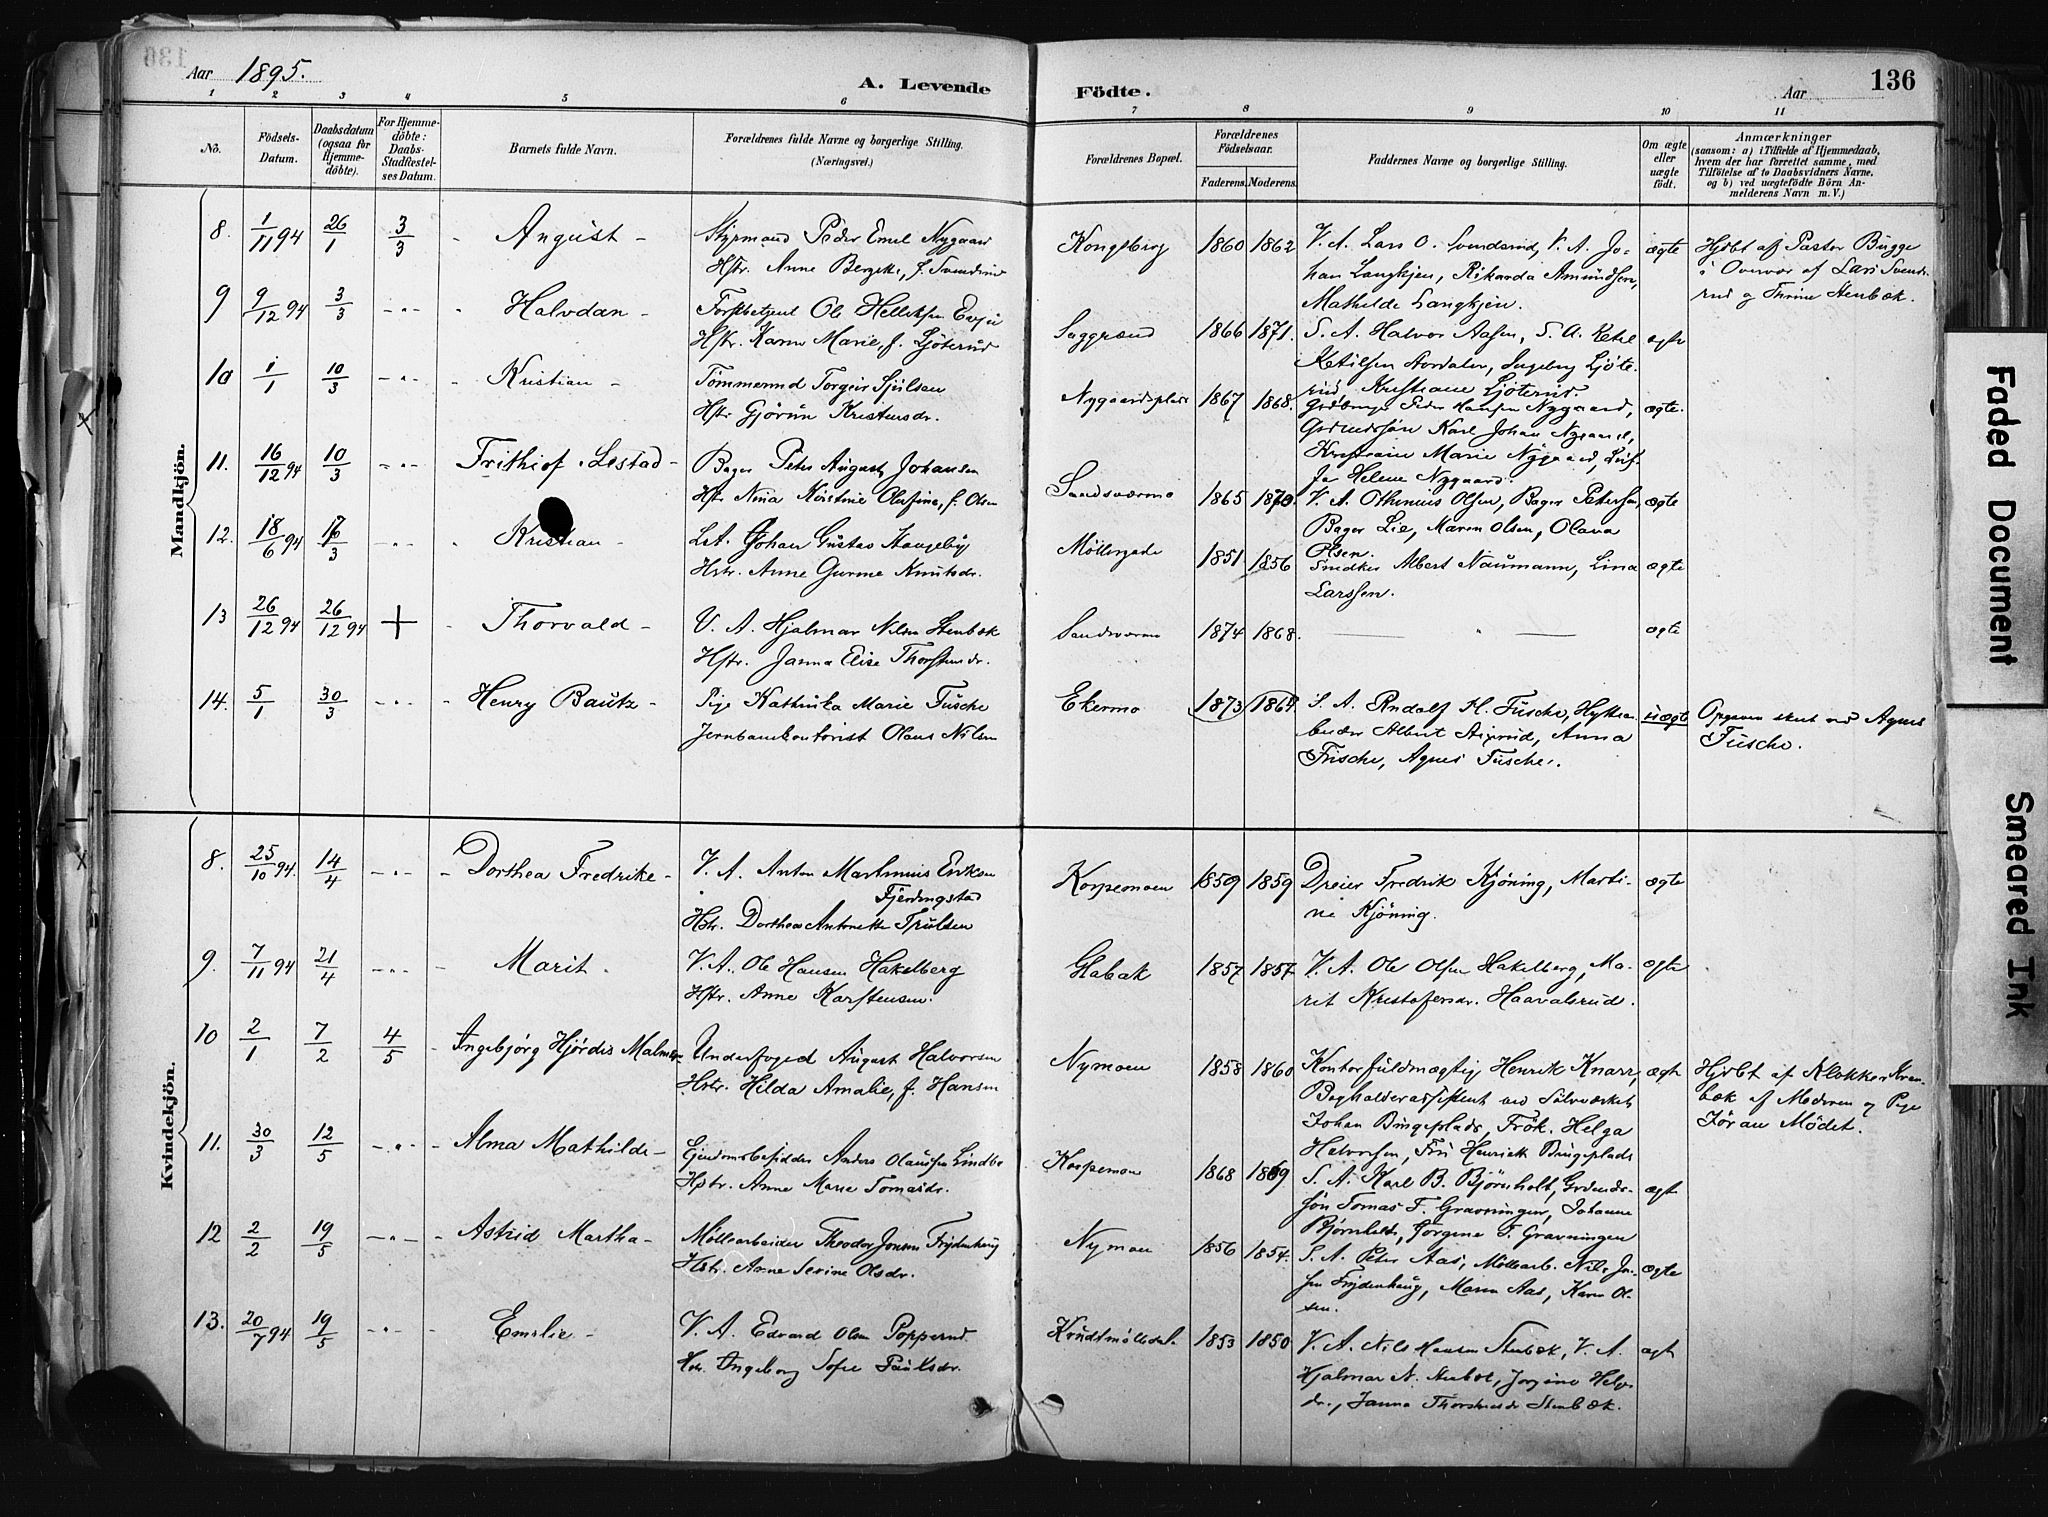 136
Aar 1895.
A. Levende Födte.
Aar
136
1 2 3 4 5 6 7 8 9 10 11
No.
Födsels-Datum.
Daabsdatum (ogsaa for Hjemmedöbte).
For Hjemmedöbte: Daabs-Stadfæstelses Datum.
Barnets fulde Navn.
Forældrenes fulde Navne og borgerlige Stilling. (Næringsvei.)
Forældrenes Bopæl.
Forældrenes Födselsaar.
Faderens. Moderens.
Faddernes Navne og borgerlige Stilling.
Om ægte eller uægte födt.
Anmærkninger
(saasom: a) i Tilfælde af Hjemmedaab, hvem der har forrettet samme, med Tilföielse af to Daabsvidners Navne, og b) ved uægtefödte Börn Anmelderens Navn m. V.)
Mandkjön.
8. 1/11 94 26/1 3/3 August - Styrmand Peder Emil Nygaard
Hstr. Anne Bergitte, f. Svendsrud
Kongsberg 1860 1862 V. A. Lars O. Svendsrud, V. A. Jo-
han Langkjen, Rikarda Amundsen,
Mathilde Langkjen.
ægte
Hjdbt af Pastor Bugge
i Overvær af Lars Svends-
rud og Thrine Stenbæk.
9 9/12 94 3/3 - " - Halvdan - Forstbetjent Ole Helleksen Evju
Hstr. Karen Marie, f. Ljöterud
Saggrænd 1866 1871. S. A. Halvor Aasen, S. A. Ketil
Ketilsen Stordalen, Ingeborg Ljöte-
rud, Kristiane Ljöterud.
ægte
10 1/1 10/3 - " - Kristian - Tömmermd Torgeir
Hstr Gjörün Kristensdr.
Nygaardsplads 1867 1868. Grdbruger Peder Hansen Nygaard,
Karl Johan Nygaard,
Marie Nygaard,
Helene Nygaard.
ægte.
11. 16/12 94 10/3 - " - Frithiof Lestad - Bager Peter August Johansen
Hstr. Nina Kristine Olufine, f. Olsen
Sandsværmo 1865 1870. V. A. Othinius Olsen, Bager Petersen,
Bager Lie, Maren Olsen, Olava
Olsen.
ægte
12. 18/6 94 17/3 - " - Kristian - Johan Gustav
Hstr. Anne Gurine Knutsdr.
Möllergade 1851. 1856 Snedker Albert Naumann, Lina
Larssen.
ægte
13 26/12 94 26/12 94 + - Thorvald - V. A. Hjalmar Nilsen Stenbæk
Hstr. Janna Elise Thorstensdr.
Sandsværmo 1874 1868. — " — ægte
14. 5/1 30/3 - " - Henry Bautz - Pige Kathinka Marie Fusche
Jernbanekontorist Olaus Nilsen
Ekermo 1873 1864 S. A. Rudolf H. Fusche,
Albert, Anna
Frische, Agnes Fusche.
uægte
Opgaven skeet ved Agnes
Fusche.
Kvindekjön.
8. 25/10 94. 14/4 - " - Dorthea Fredrike - V. A. Anton Martinius Eriksen
Fjerdingstad
Hstr. Dorthea Antonette Trulsen
Korpemoen 1859 1859 Dreier Fredrik Kjöning, Marti-
ne Kjöning.
ægte
9. 7/11 94 21/4 - " - Marit. V. A. Ole Hansen Hakelberg
Hstr. Anne Karstensen.
Glabak 1857 1857. V. A. Ole Olsen Hakelberg, Ma-
rit Kristofersdr. Haavalsrud.
ægte
10 2/1 7/2 4/5 - Ingebjörg Hjördis Malmström Underfoged August Halvorsen
Hstr. Hilda Amalie, f. Hansen
Nymoen 1858 1860 Kontorfuldmægtig Henrik Knarr,
Bogholderassistent ved Sølvværket
Johan Bingeplads, Frök. Helga
Halvorsen, Fru Henriette Bingeplads
ægte
Hjdbt af Klokker
af Moderen og Pige
Jöran Mödet.
11. 30/3 12/5 - " - Alma Mathilde - Gjendomsbesidder Anders Olaussen Lindbo
Hstr. Anne Marie Tomasdr.
Korpemoen 1868 1869 S. A. Karl B. Björnholt, Grdmds-
sön Tomas T. Gravningen, Johanne
Björnholt, Jörgine T. Gravningen
ægte
12 2/2 19/5 - " - Astrid Martha - Möllearbeider Theodor Jonsen Frydenhaug
Hstr. Anne Serine Olsdr.
Nymoen 1856 1854. S. A. Peter Aas, Möllearb. Nils Jo-
sen Frydenhaug, Maren Aas, Karen Ol-
sen.
ægte
13. 20/7 94 19/5 - " - Emilie - V. A. Edvard Olsen Popperud
Hstr. Ingeborg Sofie Paulsdr.
1853 1850 V. A. Nils Hansen Stenbæk, V. A.
Hjalmar N. Stenbæk, Jorgine Helge-
dr., Janna Thorstensdr Stenbæk.
ægte
Faded Document
Smeared Ink